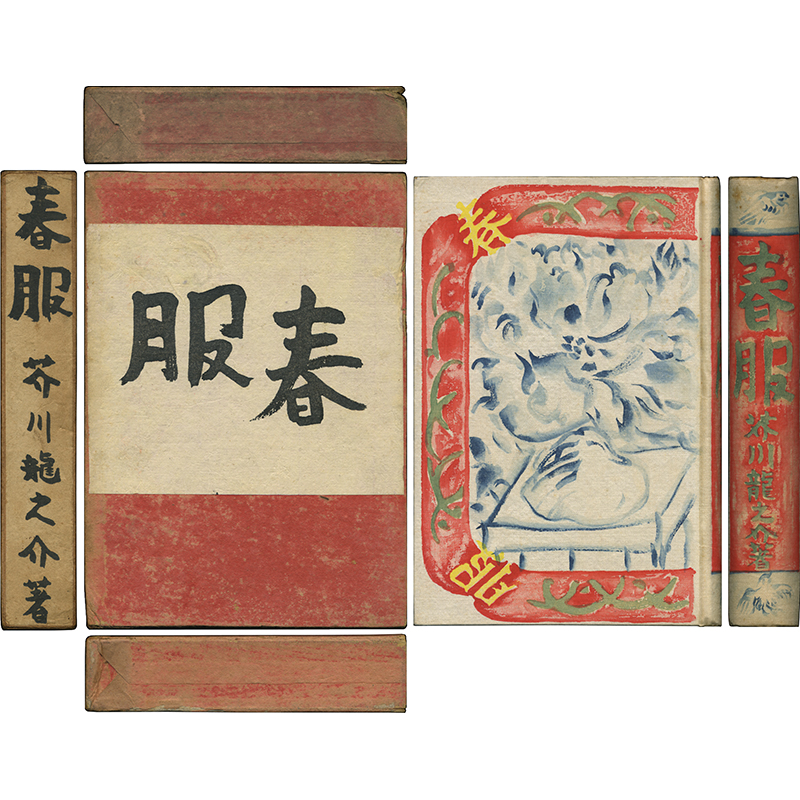 春服
芥川龍之介著
春服
春服
春服
芥川龍之介著